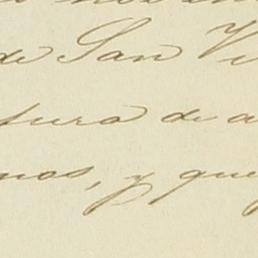 de San Vi
tura de a
nos, y que